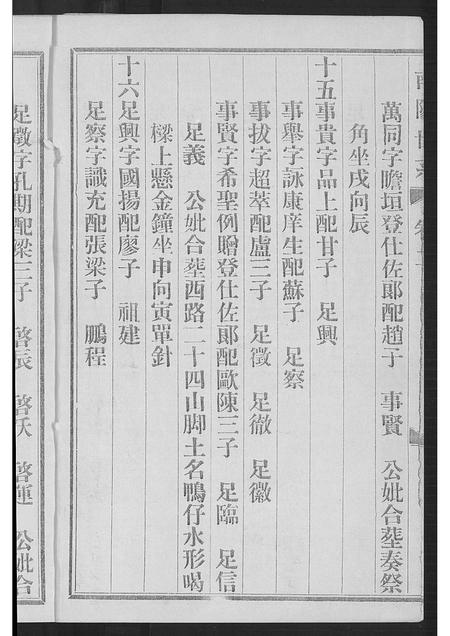 萬同字瞻垣登仕佐郎配趙子 事賢 公妣合塟奏祭
角坐戌向辰
十五事貴字品上配甘子 足興
事舉字詠康庠生配蘇子 足察
事拔字超萃配盧三子 足徵 足徹 足徽
事賢字希聖例贈登仕佐郎配歐陳三子 足臨 足信
足義 公妣合塟西路二十四山脚土名鴨仔水形喝
樑上懸金鐘坐申向寅單針
十六足興字國揚配廖子 祖建
足察字識充配張梁子 鵬程
足徵字孔期配梁三子 啓辰 啓沃 啓運 公妣合